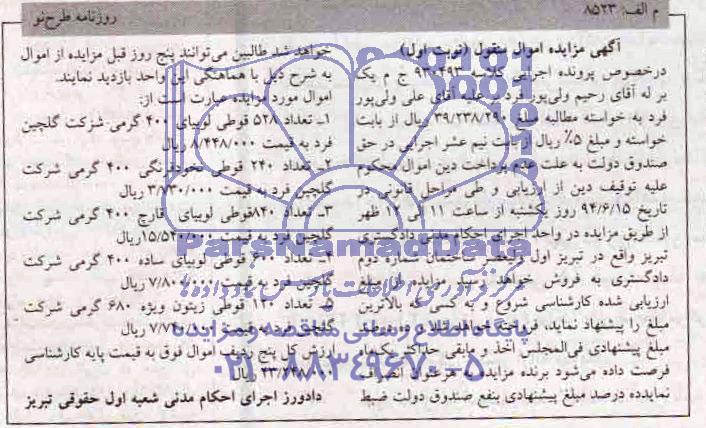 م الف: ۸۵۲۳
روزنامه طرح‌نو
آگهی مزایده اموال منقول (نوبت اول)
درخصوص پرونده اجرایی کلاسه ۹۳۰۴۹۳ ج م یک
بر له آقای رحیم ولی‌پور فرد و علیه آقای علی ولی‌پور
فرد به خواسته مطالبه مبلغ ۳۹/۲۳۸/۲۹۰ ریال از بابت
خواسته و مبلغ ۵٪ ریال از بابت نیم عشر اجرایی در حق
صندوق دولت به علت عدم پرداخت دین اموال محکوم
علیه توقیف دین از ارزیابی و طی مراحل قانونی در
تاریخ ۹۴/۶/۱۵ روز یکشنبه از ساعت ۱۱ الی ۱۲ ظهر
از طریق مزایده در واحد اجرای احکام مدنی دادگستری
تبریز واقع در تبریز اول ساختمان شماره دوم
دادگستری به فروش خواهد رسید مزایده از مبلغ
ارزیابی شده کارشناسی شروع و به کسی که بالاترین
مبلغ را پیشنهاد نماید، فروخته خواهد شد. ده درصد
مبلغ پیشنهادی فی‌المجلس اخذ و مابقی حداکثر یکماه
فرصت داده می‌شود برنده مزایده هرعنوان انصراف
نمایدده درصد مبلغ پیشنهادی بنفع صندوق دولت ضبط
خواهد شد طالبین می‌توانند پنج روز قبل مزایده از اموال
به شرح ذیل با هماهنگی این واحد بازدید نمایند.
اموال مورد مزایده عبارت است از:
۱ـ تعداد ۵۲۸ قوطی لوبیای ۴۰۰ گرمی شرکت گلچین
فرد به قیمت ۸/۴۴۸/۰۰۰ ریال
۲ـ تعداد ۲۴۰ قوطی نخودفرنگی ۴۰۰ گرمی شرکت
گلچین فرد به قیمت ۳/۷۳۰/۰۰۰ ریال
۳ـ تعداد ۸۴۰قوطی لوبیای قارچ ۴۰۰ گرمی شرکت
گلچین فرد به قیمت ۱۵/۵۴۰/۰۰۰ریال
۴ـ تعداد ۶۰۰ قوطی لوبیای ساده ۴۰۰ گرمی شرکت
گلچین فرد به قیمت ۷/۸۰۰/۰۰۰ ریال
۵ـ تعداد ۱۲۰ قوطی زیتون ویژه ۶۸۰ گرمی شرکت
گلچین فرد به قیمت ریال
ارزش کل پنج ردیف اموال فوق به قیمت پایه کارشناسی
ریال
دادورز اجرای احکام مدنی شعبه اول حقوقی تبریز
ParsNamadData
مرکز فرآوری اطلاعات پارس نماد داده‌ها
پایگاه اطلاع رسانی مناقصه و مزایده
۰۲۱-۸۸۳۴۹۶۷۰-۵